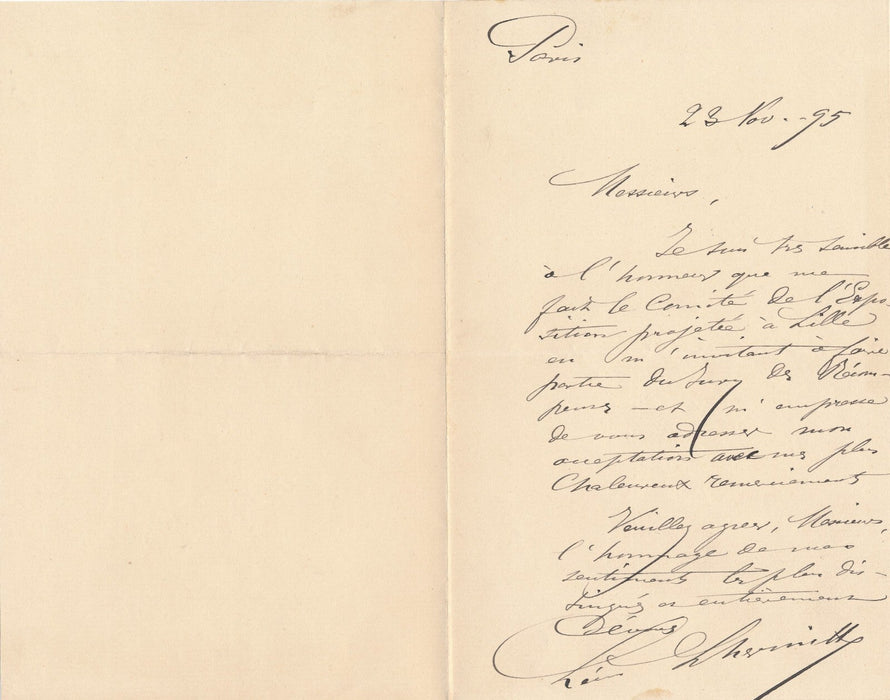 Paris
23 Nov. - 95
Messieurs,
Je suis très sensible
à l'honneur que me
fait le Comité de l'Expo-
sition projetée à Lille
en m'invitant à faire
partie du Jury des Récom-
penses - et m'empresse
de vous adresser mon
acceptation avec mes plus
Chaleureux remerciements
Veuillez agréer, Messieurs,
l'hommage de mes
sentiments les plus dis-
tingués et entièrement
Dévoués
Léon Lhermitte